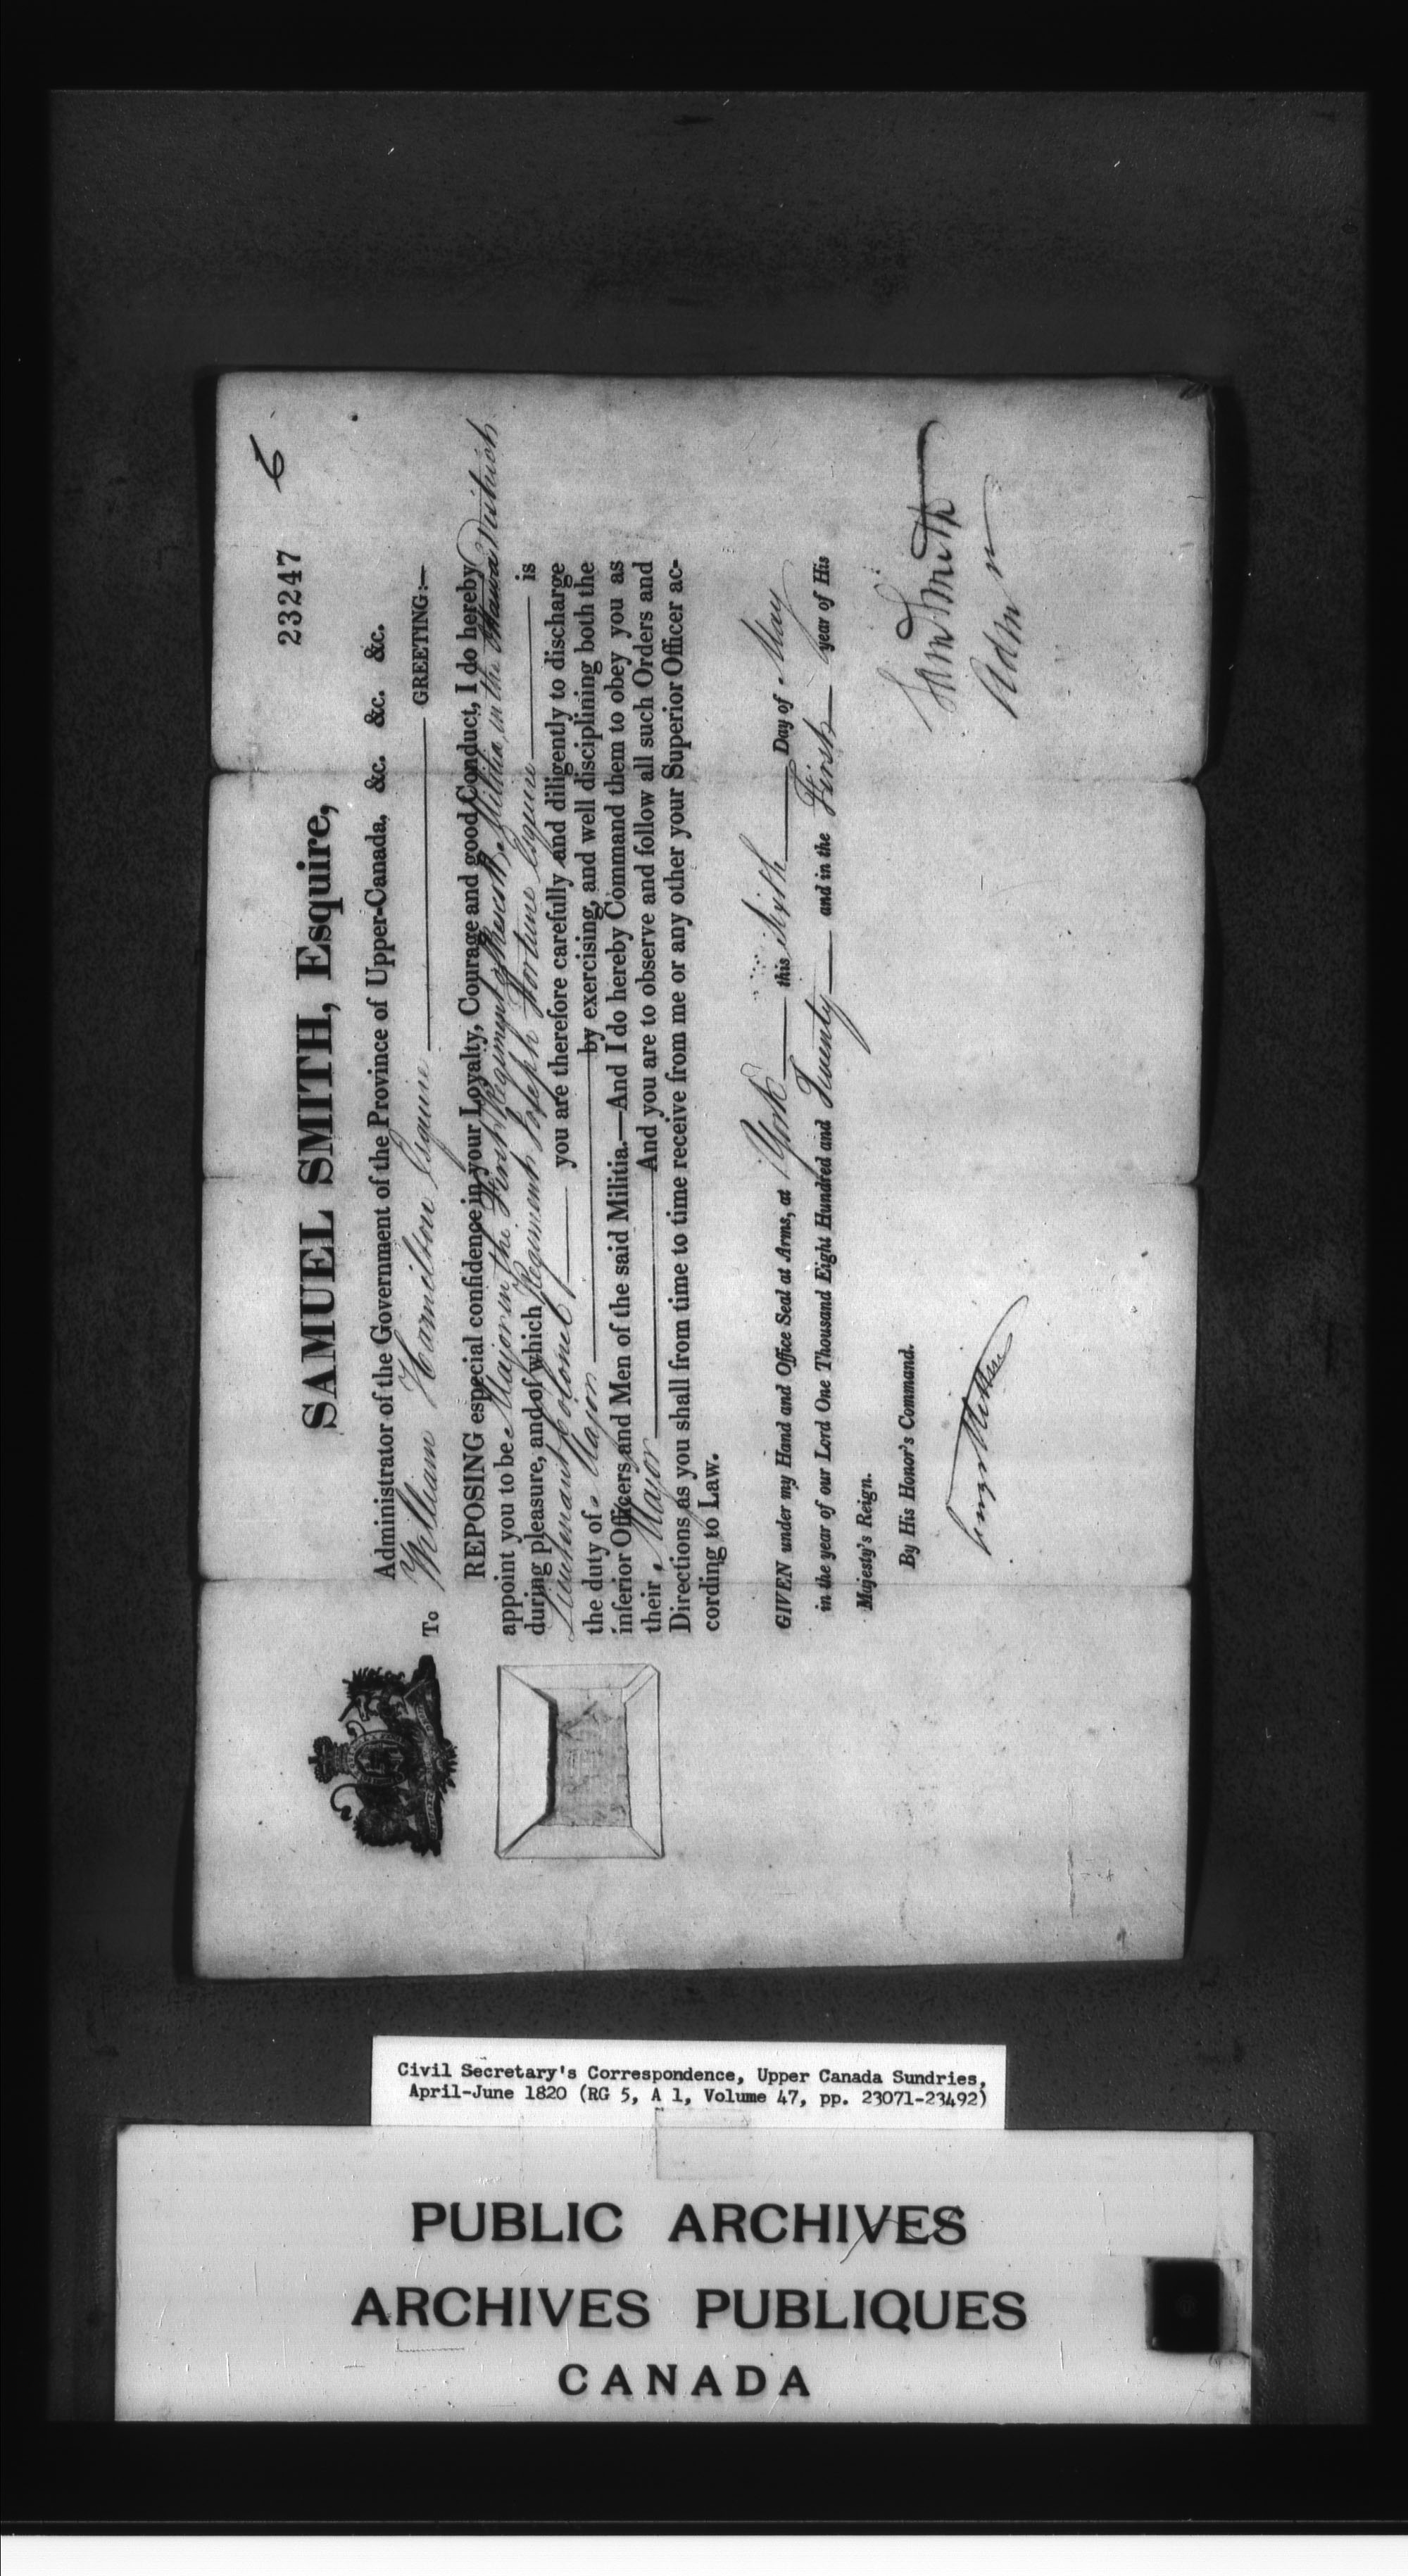 23247 6
SAMUEL SMITH, Esquire,
Administrator of the Government of the Province of Upper-Canada, &c. &c. &c. &c.
To William Hamilton Esquire GREETING:—
REPOSING especial confidence in your Loyalty, Courage and good Conduct, I do hereby
appoint you to be Major in the First Regiment of Prescott Militia, in the Ottawa District
during pleasure, and of which Regiment Joseph Fortune Esquire is
Lieutenant Colonel you are therefore carefully and diligently to discharge
the duty of Major by exercising, and well disciplining both the
inferior Officers and Men of the said Militia.—And I do hereby Command them to obey you as
their Major And you are to observe and follow all such Orders and
Directions as you shall from time to time receive from me or any other your Superior Officer ac-
cording to Law.
GIVEN under my Hand and Office Seal at Arms, at York this sixth Day of May
in the year of our Lord One Thousand Eight Hundred and Twenty and in the First year of His
Majesty's Reign.
By His Honor's Command.
Sam Smith
Admr
Civil Secretary's Correspondence, Upper Canada Sundries,
April-June 1820 (RG 5, A 1, Volume 47, pp. 23071-23492)
PUBLIC ARCHIVES
ARCHIVES PUBLIQUES
CANADA